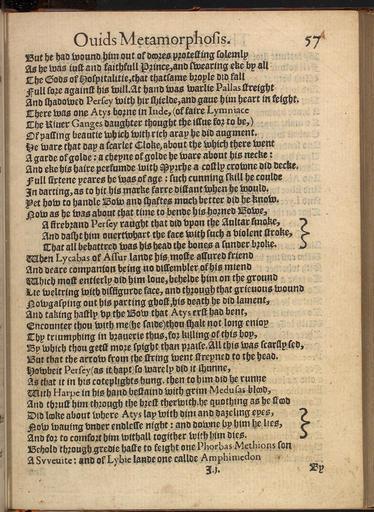 Ouids Metamorphosis. 57
But he had wound him out of doores protesting solemly
As he was iust and faithfull Prince, and swearing eke by all
The Gods of Hospitalitie, that that same broyle did fall
Full sore against his will. At hand was warlie Pallas streight
And shadowed Persey with hir shielde, and gaue him heart in feight.
There was one Atys borne in Inde, (of faire Lymniace
The Riuer Ganges daughter thought the issue for to be,)
Of passing beautie which with rich aray he did augment.
He ware that day a scarlet Cloke, about the which there went
A garde of golde: a cheyne of golde he ware about his necke:
And eke his haire perfumde with Myrrhe a costly crowne did decke.
Full sixtene yeares he was of age: such cunning skill he coulde
In darting, as to hit his marke farre distant when he would.
Yet how to handle Bow and shaftes much better did he know.
Now as he was about that time to bende his horned Bowe,
A firebrand Persey raught that did vpon the Aultar smoke,
And dasht him ouerthwart the face with such a violent stroke,
That all bebattred was his head the bones a sunder broke.
When Lycabas of Assur lande his moste assured friend
And deare companion being no dissembler of his miend
Which most entierly did him loue, behelde him on the ground
Lie weltring with disfigurde face, and through that grieuous wound
Now gasping out his parting ghost, his death he did lament,
And taking hastly vp the Bow that Atys erst had bent,
Encounter thou with me (he saide) thou shalt not long enioy
Thy triumphing in brauerie thus, for killing of this boy,
By which thou getst more spight than praise. All this was scarsly sed,
But that the arrow from the string went streyned to the head.
Howbeit Persey (as it hapt) so warely did it shunne,
As that it in his coteplights hung. then to him did he runne
With Harpe in his hand bestaind with grim Medusas blood,
And thrust him through the brest therwith. he quothing as he stood
Did looke about where Atys lay with dim and dazeling eyes,
Now wauing vnder endlesse night: and downe by him he lies,
And for to comfort him withall togither with him dies.
Behold through gredie haste to feight one Phorbas Methions son
A Svveuite: and of Lybie lande one callde Amphimedon
I.i. By